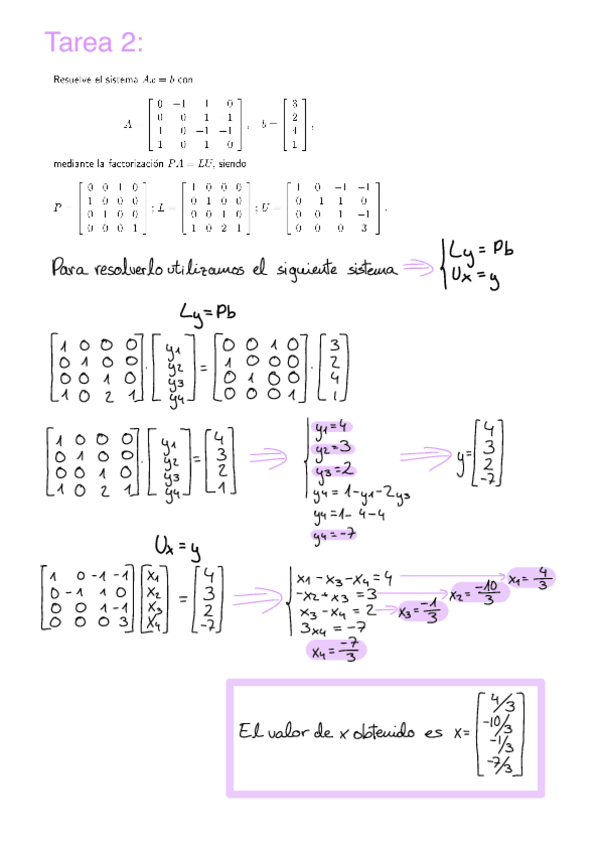 Tarea 2:
Resuelve el sistema Ax = b con
A = [ 0 −1 1 0 ; 0 0 1 −1 ; 1 0 −1 −1 ; 1 0 1 0 ] , b = [ 3 ; 2 ; 4 ; 1 ] ,
mediante la factorización PA = LU, siendo
P = [ 0 0 1 0 ; 1 0 0 0 ; 0 1 0 0 ; 0 0 0 1 ] ; L = [ 1 0 0 0 ; 0 1 0 0 ; 0 0 1 0 ; 1 0 2 1 ] ; U = [ 1 0 −1 −1 ; 0 −1 1 0 ; 0 0 1 −1 ; 0 0 0 3 ] .
Para resolverlo utilizamos el siguiente sistema ⇒ { Ly = Pb
Ux = y
Ly = Pb
[ 1 0 0 0 ; 0 1 0 0 ; 0 0 1 0 ; 1 0 2 1 ] · [ y1 ; y2 ; y3 ; y4 ] = [ 0 0 1 0 ; 1 0 0 0 ; 0 1 0 0 ; 0 0 0 1 ] · [ 3 ; 2 ; 4 ; 1 ]
[ 1 0 0 0 ; 0 1 0 0 ; 0 0 1 0 ; 1 0 2 1 ] · [ y1 ; y2 ; y3 ; y4 ] = [ 4 ; 3 ; 2 ; 1 ] ⇒
y1 = 4
y2 = 3
y3 = 2
y4 = 1 - y1 - 2y3
y4 = 1 - 4 - 4
y4 = -7
⇒ y = [ 4 ; 3 ; 2 ; -7 ]
Ux = y
[ 1 0 -1 -1 ; 0 -1 1 0 ; 0 0 1 -1 ; 0 0 0 3 ] [ x1 ; x2 ; x3 ; x4 ] = [ 4 ; 3 ; 2 ; -7 ] ⇒
x1 - x3 - x4 = 4 → x1 = 4/3
-x2 + x3 = 3 → x2 = -10/3
x3 - x4 = 2 → x3 = -1/3
3x4 = -7
x4 = -7/3
El valor de x obtenido es x = [ 4/3 ; -10/3 ; -1/3 ; -7/3 ]